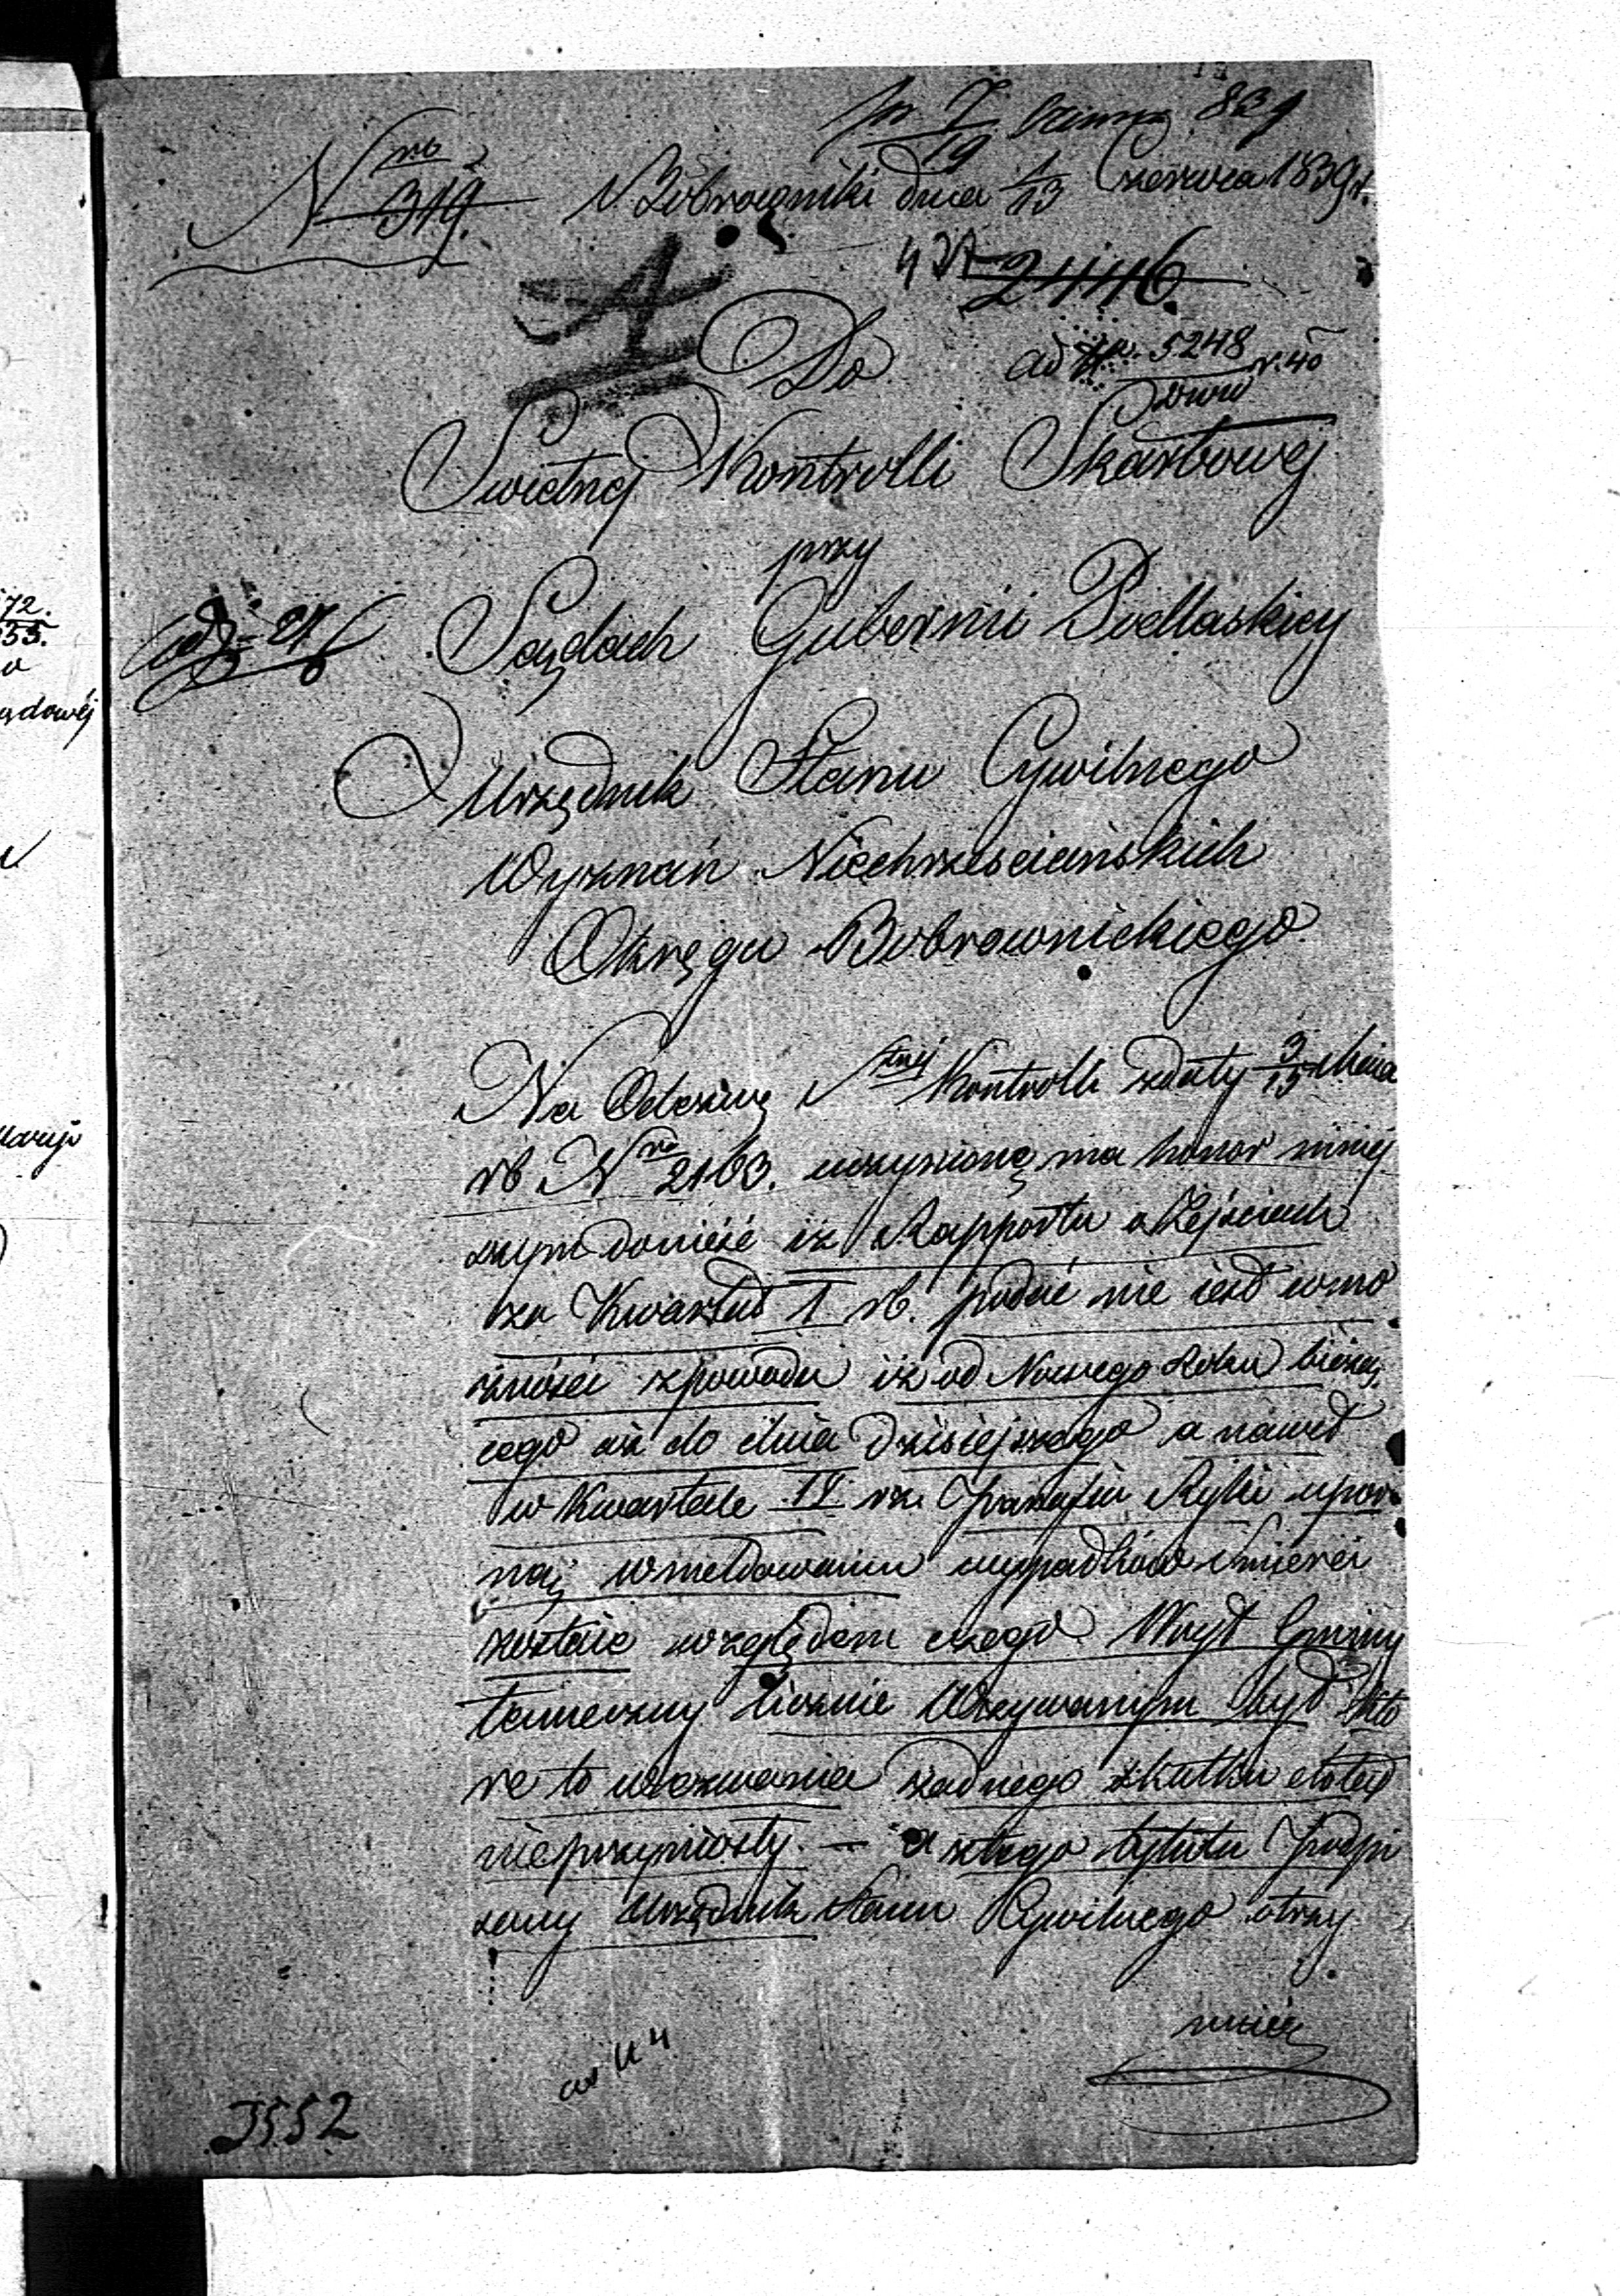 pr 7/19 Czerwca 839
Nro 319. Bobrowniki dnia 1/13 Czerwca 1839 r.
2446.
Do
ad 5248 r. 40
Swietnej Kontrolli Skarbowej
przy
Sądach Gubernii Podlaskiey
Urzędnik Stanu Cywilnego
Wyznań Niechrześciańskich
Okręgu Bobrownickiego
Na Odezwę Stnej Kontrolli zdaty 3/15 Maia
rb Nro 2163. uczynioną ma honor niniej
szym donieść iż Rapportu o Zejściach
za Kwartał 1 rb. podać nie iest wmo
żności zpowodu iż od Nowego Roku bieżą
cego aż do dnia dzisiejszego a nawet
w Kwartale IV rz. Parafia Ryki upor
ną wmeldowaniu wypadków śmierci
zostaie względem czego Woyt Gminy
tameczny licznie Wzywanym był któ
re to wezwania żadnego skutku dotąd
nieprzyniosły. — a ztego tytułu Podpi
sany Urzędnik Stanu Cywilnego otrzy
mać
J552
72.
55.
ądowéj